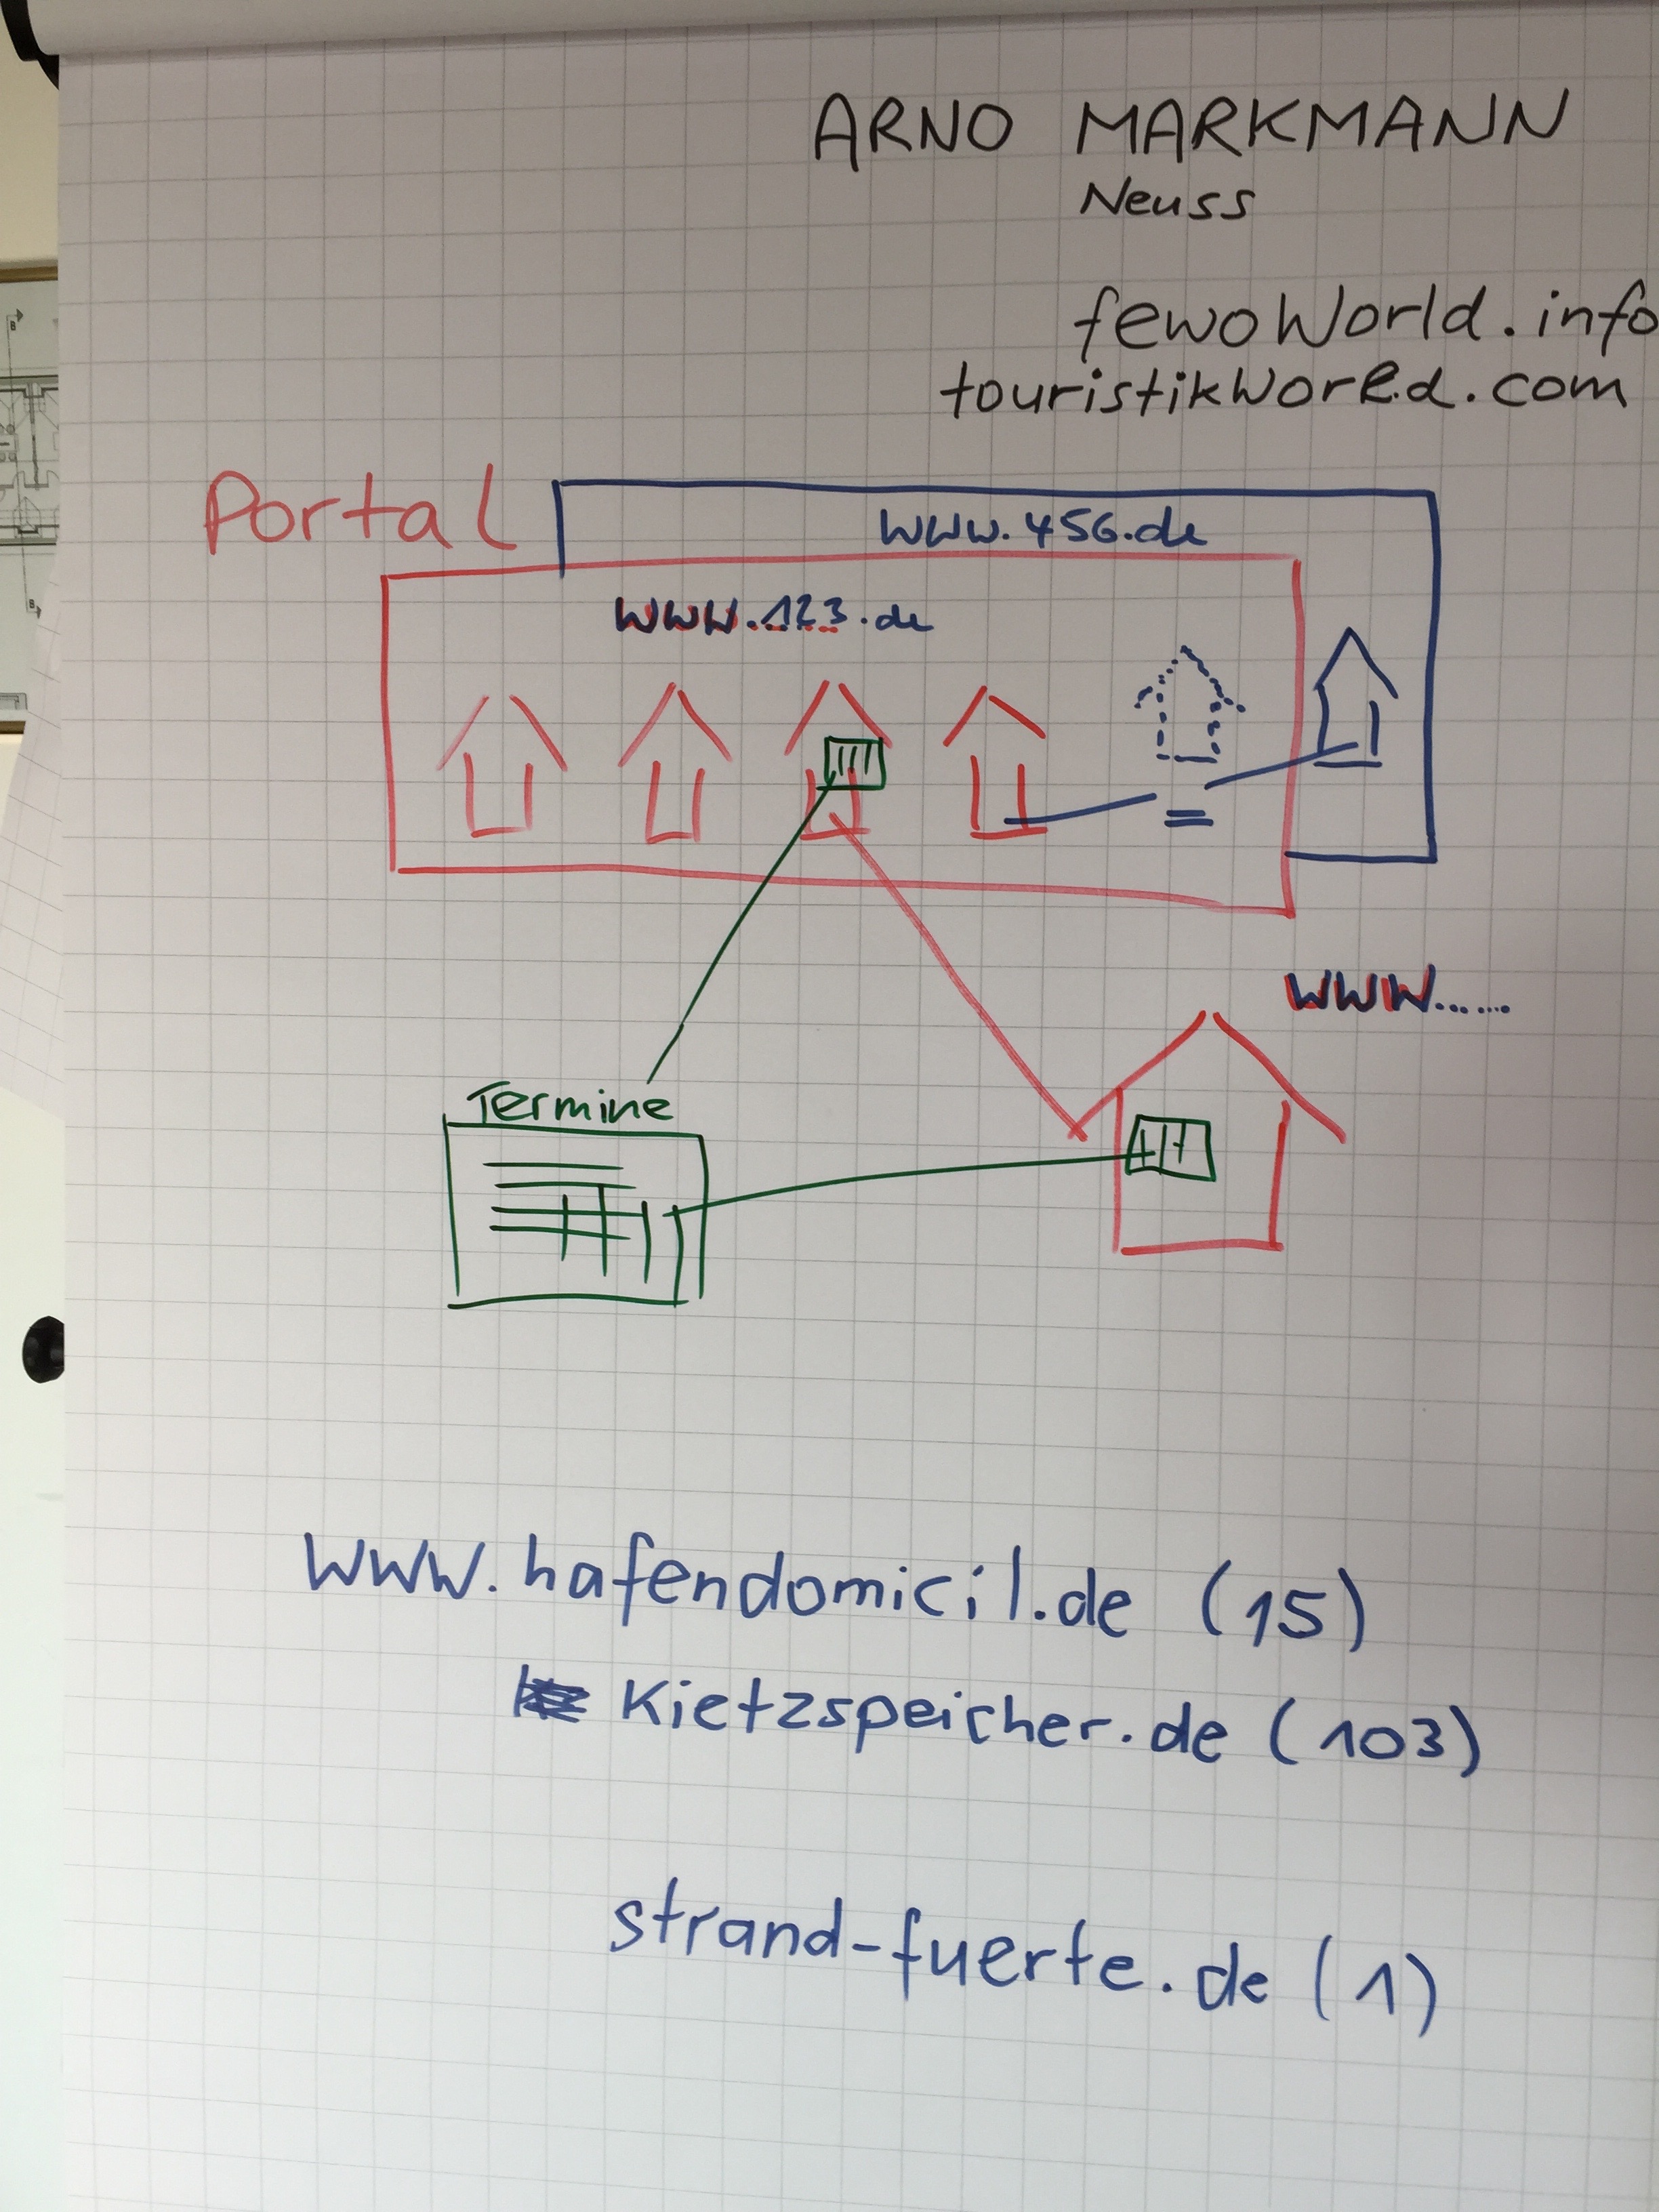 ARNO MARKMANN
Neuss
fewoWorld.info
touristikWorld.com
Portal
www.456.de
www.123.de
=
www......
Termine
www.hafendomicil.de (15)
Kietzspeicher.de (103)
strand-fuerte.de (1)